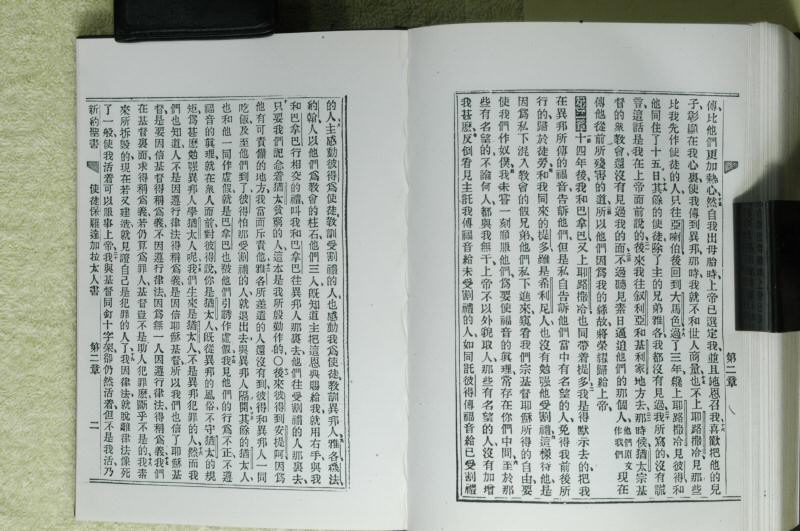 傳比他們更加熱心然自我出母胎時上帝已選定我並且施恩召我喜歡把他的兒
子彰顯在我心裏使我傳到異邦那時我就不和世人商量也不上耶路撒冷見那些
比我先作使徒的人只往亞喇伯後回到大馬色過了三年纔上耶路撒冷見彼得和
他同住了十五日其餘的使徒除了主的兄弟雅各我都沒有見過我所寫的沒有謊
言這話是我在上帝面前說的後來我往叙利亞和基利家地方去那時候猶太宗基
督的衆教會還沒有見過我的面不過聽見素日逼迫他們的那個人他們原文作我們現在
傳他從前所殘害的道所以他們因爲我的緣故將榮耀歸給上帝
第二章十四年後我和巴拿巴又上耶路撒冷也同帶着提多我是得默示去的把我
在異邦所傳的福音告訴他們但是私自告訴他們當中有名望的人免得我前後所
行的歸於徒勞和我同來的提多雖是希利尼人也沒有勉強他受割禮這樣待他是
因爲私下混入教會的假兄弟他們私下進來窺看我們宗基督耶穌所得的自由要
使我們作奴僕我未甞一刻順服他們爲要使福音的眞理常存在你們中間至於那
些有名望的不論何人都與我無干上帝不以外貌取人那些有名望的人沒有加增
我甚麽反倒看見主託我傳福音給未受割禮的人如同託彼得傳福音給已受割禮
第二章
的人主感動彼得爲使徒敎訓受割禮的人也感動我爲使徒敎訓異邦人雅各磯法
約翰人以他們爲敎會的柱石他們三人既知道主把這恩典賜給我就用右手與我
和巴拿巴行相交的禮叫我和巴拿巴往異邦人那裏去他們往受割禮的人那裏去
只要我們記念着猶太貧窮的人這本是我所殷勤作的○後來彼得到安提阿因爲
他有可責備的地方我當面斥責他雅各所差遣的人還沒有到彼得和異邦人一同
吃飯及至他們到了彼得怕那受割禮的人就退出去與異邦人隔開其餘的猶太人
也和他一同作虛假就是巴拿巴也被他們引誘作虛假我見他們的行爲不正不遵
福音的眞理就在衆人面前對彼得說你是猶太人既從異邦的風俗不守猶太的規
矩爲甚麽勉強異邦人學猶太人呢我們生來是猶太人不是異邦犯罪的人然而我
們也知道人不是因遵行律法得稱爲義是因信耶穌基督所以我們也信了耶穌基
督是要因信基督得稱爲義不因遵行律法因爲無一人因遵行律法得稱爲義我們
在基督裏面求得稱爲義若仍算爲罪人基督豈不是助人犯罪麽斷乎不是的我素
來所拆毀的現在若又建造就見證自己是犯罪的人了我因律法就脫離律法像死
了一般使我活着可以服事上帝我與基督同釘十字架卻仍然活着但不是我活乃
新約聖書 使徒保羅達加拉太人書 第二章 二